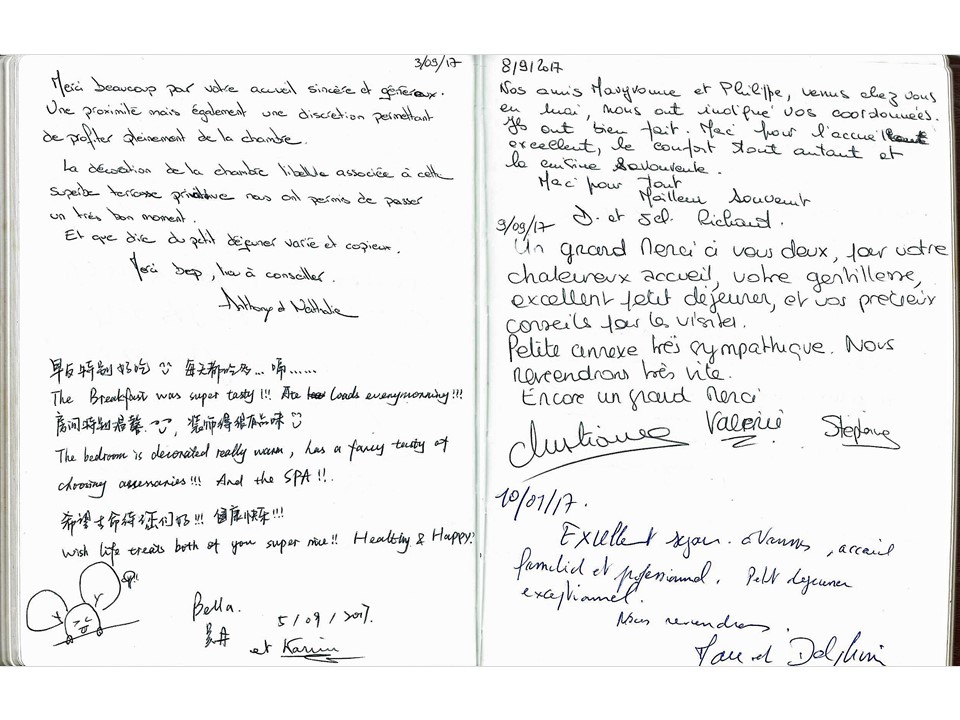 3/09/17
Merci beaucoup pour votre accueil sincère et généreux.
Une proximité mais également une discretion permettant
de profiter pleinement de la chambre.
La décoration de la chambre libellule associée à cette
superbe terrasse privative nous ont permis de passer
un très bon moment.
Et que dire du petit déjeuner varié et copieux.
Merci bcp, lieu à conseiller.
Anthony et Nathalie
早点特别好吃 每天都吃多...嗝......
The Breakfast was super tasty !!! Ate loads everymorning !!!
房间特别温馨, 装饰得很有品味
The bedroom is decorated really warm, has a fancy tasty of
choosing assenaries!!! And the SPA!!.
希望生命待您们好!!! 健康快乐!!!
Wish life treats both of you super nice!! Healthy & Happy!
Bella.
5/09/2017.
et Karim
8/9/2017
Nos amis Maryvonne et Philippe, venus chez vous
en mai, nous ont indiqué vos coordonnées.
Ils ont bien fait. Merci pour l'accueil
excellent, le confort tout autant et
la cuisine savoureuse.
Merci pour tout
Meilleur souvenir
D. et Richard.
3/09/17
Un grand Merci à vous deux, pour votre
chaleureux accueil, votre gentillesse,
excellent petit déjeuner, et vos précieux
conseils pour les visites.
Petite annexe très sympathique. Nous
reviendrons très vite.
Encore un grand Merci
Christiane Valérie Stéphane
10/01/17.
Excellent sejour à Vannes, accueil
familial et professionnel. Petit dejeuner
exceptionnel.
Nous reviendrons.
et Delphine